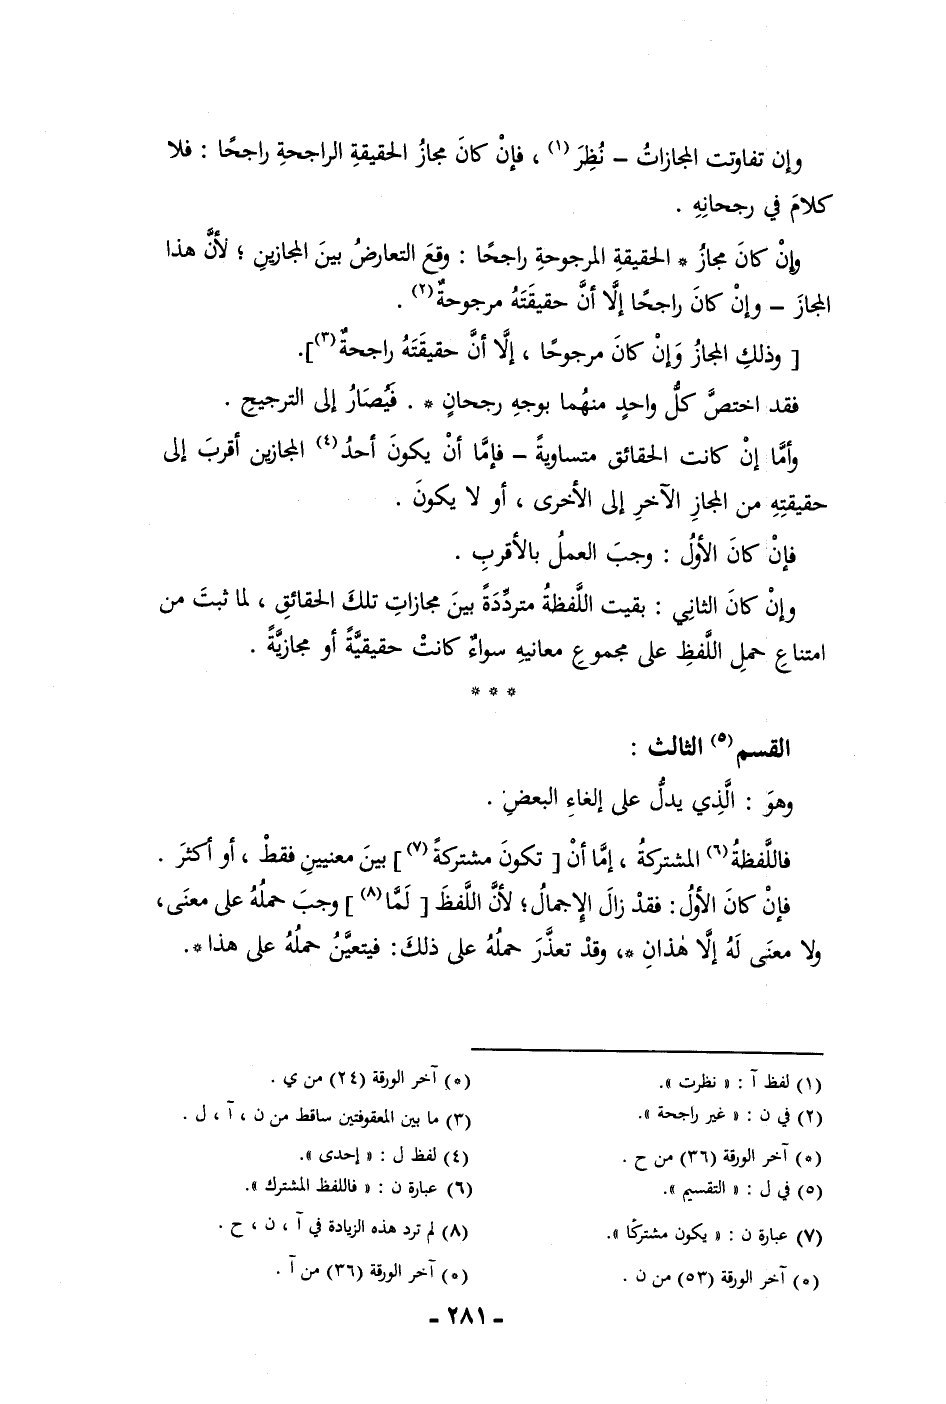 وإن تفاوتت المجازاتُ – نُظِرَ (١) ، فإنْ كانَ مجازُ الحقيقةِ الراجحةِ راجحًا : فلا
كلامَ في رجحانِهِ .
وإنْ كانَ مجازُ * الحقيقةِ المرجوحةِ راجحًا : وقعَ التعارضُ بينَ المجازينِ ؛ لأنَّ هذا
المجازَ – وإنْ كانَ راجحًا إلَّا أنَّ حقيقَتَهُ مرجوحةٌ (٢) .
[ وذلكِ المجازُ وَإنْ كانَ مرجوحًا ، إلَّا أنَّ حقيقَتَهُ راجحةٌ (٣)].
فقد اختصَّ كلُّ واحدٍ منهُما بوجهِ رجحانٍ * . فَيُصَارُ إلى الترجيحِ .
وأمَّا إنْ كانت الحقائق متساويةً – فإمَّا أنْ يكونَ أحدُ (٤) المجازين أقربَ إلى
حقيقتِهِ من المجازِ الآخرِ إلى الأخرى ، أو لا يكونَ .
فإنْ كانَ الأولُ : وجبَ العملُ بالأقربِ .
وإنْ كانَ الثانِي : بقيت اللَّفظةُ متردِّدَةً بينَ مجازاتِ تلكَ الحقائقِ ، لما ثبتَ من
امتناعِ حملِ اللَّفظِ على مجموعِ معانيهِ سواءٌ كانتْ حقيقيَّةً أو مجازيَّةً .
* * *
القسم (٥) الثالث :
وهوَ : الَّذِي يدلُّ على إلغاءِ البعضِ .
فاللَّفظةُ (٦) المشتركةُ ، إمَّا أنْ [ تكونَ مشتركةً (٧) ] بينَ معنيينِ فقطْ ، أو أكثرَ .
فإنْ كانَ الأولُ : فقدْ زالَ الإجمالُ ؛ لأنَّ اللَّفظَ [ لَمَّا (٨) ] وجبَ حملُهُ على معنَى ،
ولا معنَى لَهُ إلَّا هٰذانِ *، وقدْ تعذَّرَ حملُهُ على ذلكَ : فيتعيَّنُ حملُهُ على هذا *.
(١) لفظ آ : « نظرت ».
(*) آخر الورقة (٢٤) من ي .
(٢) في ن : « غير راجحة ».
(٣) ما بين المعقوفتين ساقط من ن ، آ ، ل .
(*) آخر الورقة (٣٦) من ح .
(٤) لفظ ل : « إحدى ».
(٥) في ل : « التقسيم ».
(٦) عبارة ن : « فاللفظ المشترك ».
(٧) عبارة ن : « يكون مشتركًا ».
(٨) لم ترد هذه الزيادة في آ ، ن ، ح .
(*) آخر الورقة (٥٣) من ن .
(*) آخر الورقة (٣٦) من آ .
- ٢٨١ -